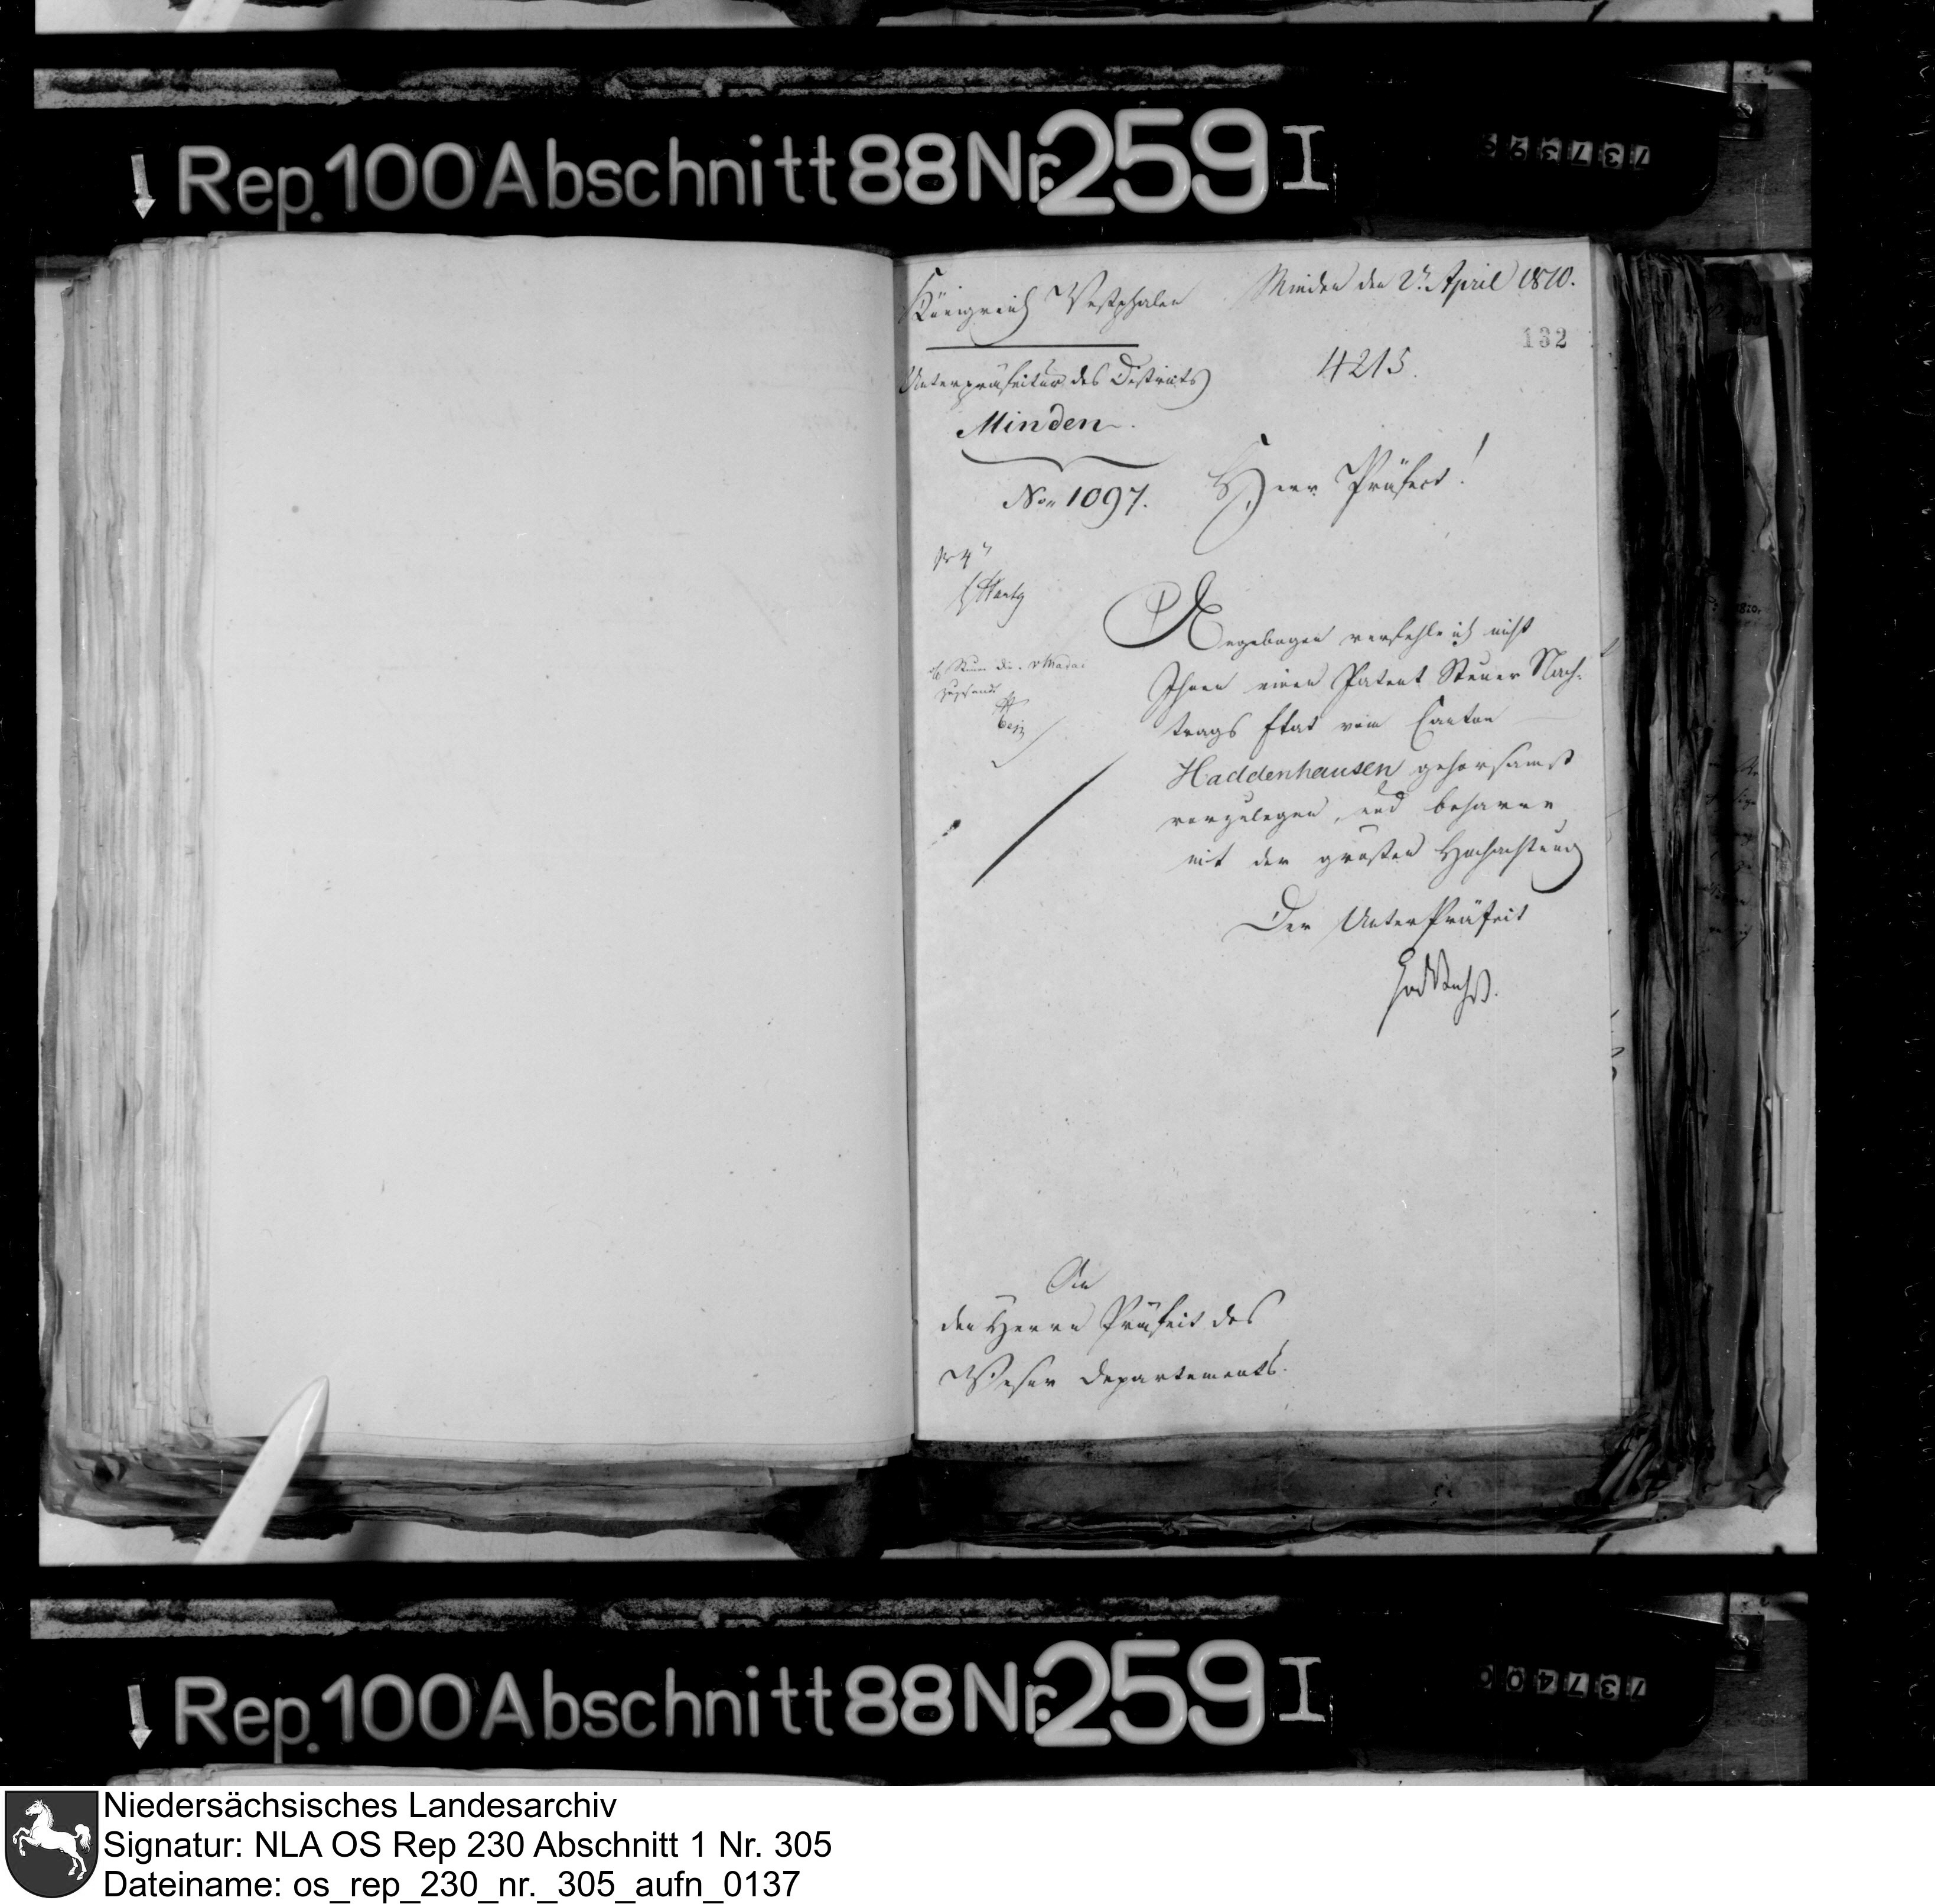 Rep. 100 Abschnitt 88 Nr. 259 I
737399
Königreich Westphalen
Minden den 2t. April 1810.
132
4215.
Unterpräfectur des Districts
Minden.
No. 1097.
Herr Präfect!
pr 4
Angebogen verfehle ich nicht
Ihnen einen Patent Steuer Nach-
trags Etat vom Canton
Haddenhausen gehorsamst
vorzulegen, und beharre
mit der grosten Hochachtung
Der UnterPräfect
An
den Herrn Präfect des
Weser Departements.
Rep. 100 Abschnitt 88 Nr. 259 I
737400
Niedersächsisches Landesarchiv
Signatur: NLA OS Rep 230 Abschnitt 1 Nr. 305
Dateiname: os_rep_230_nr._305_aufn_0137